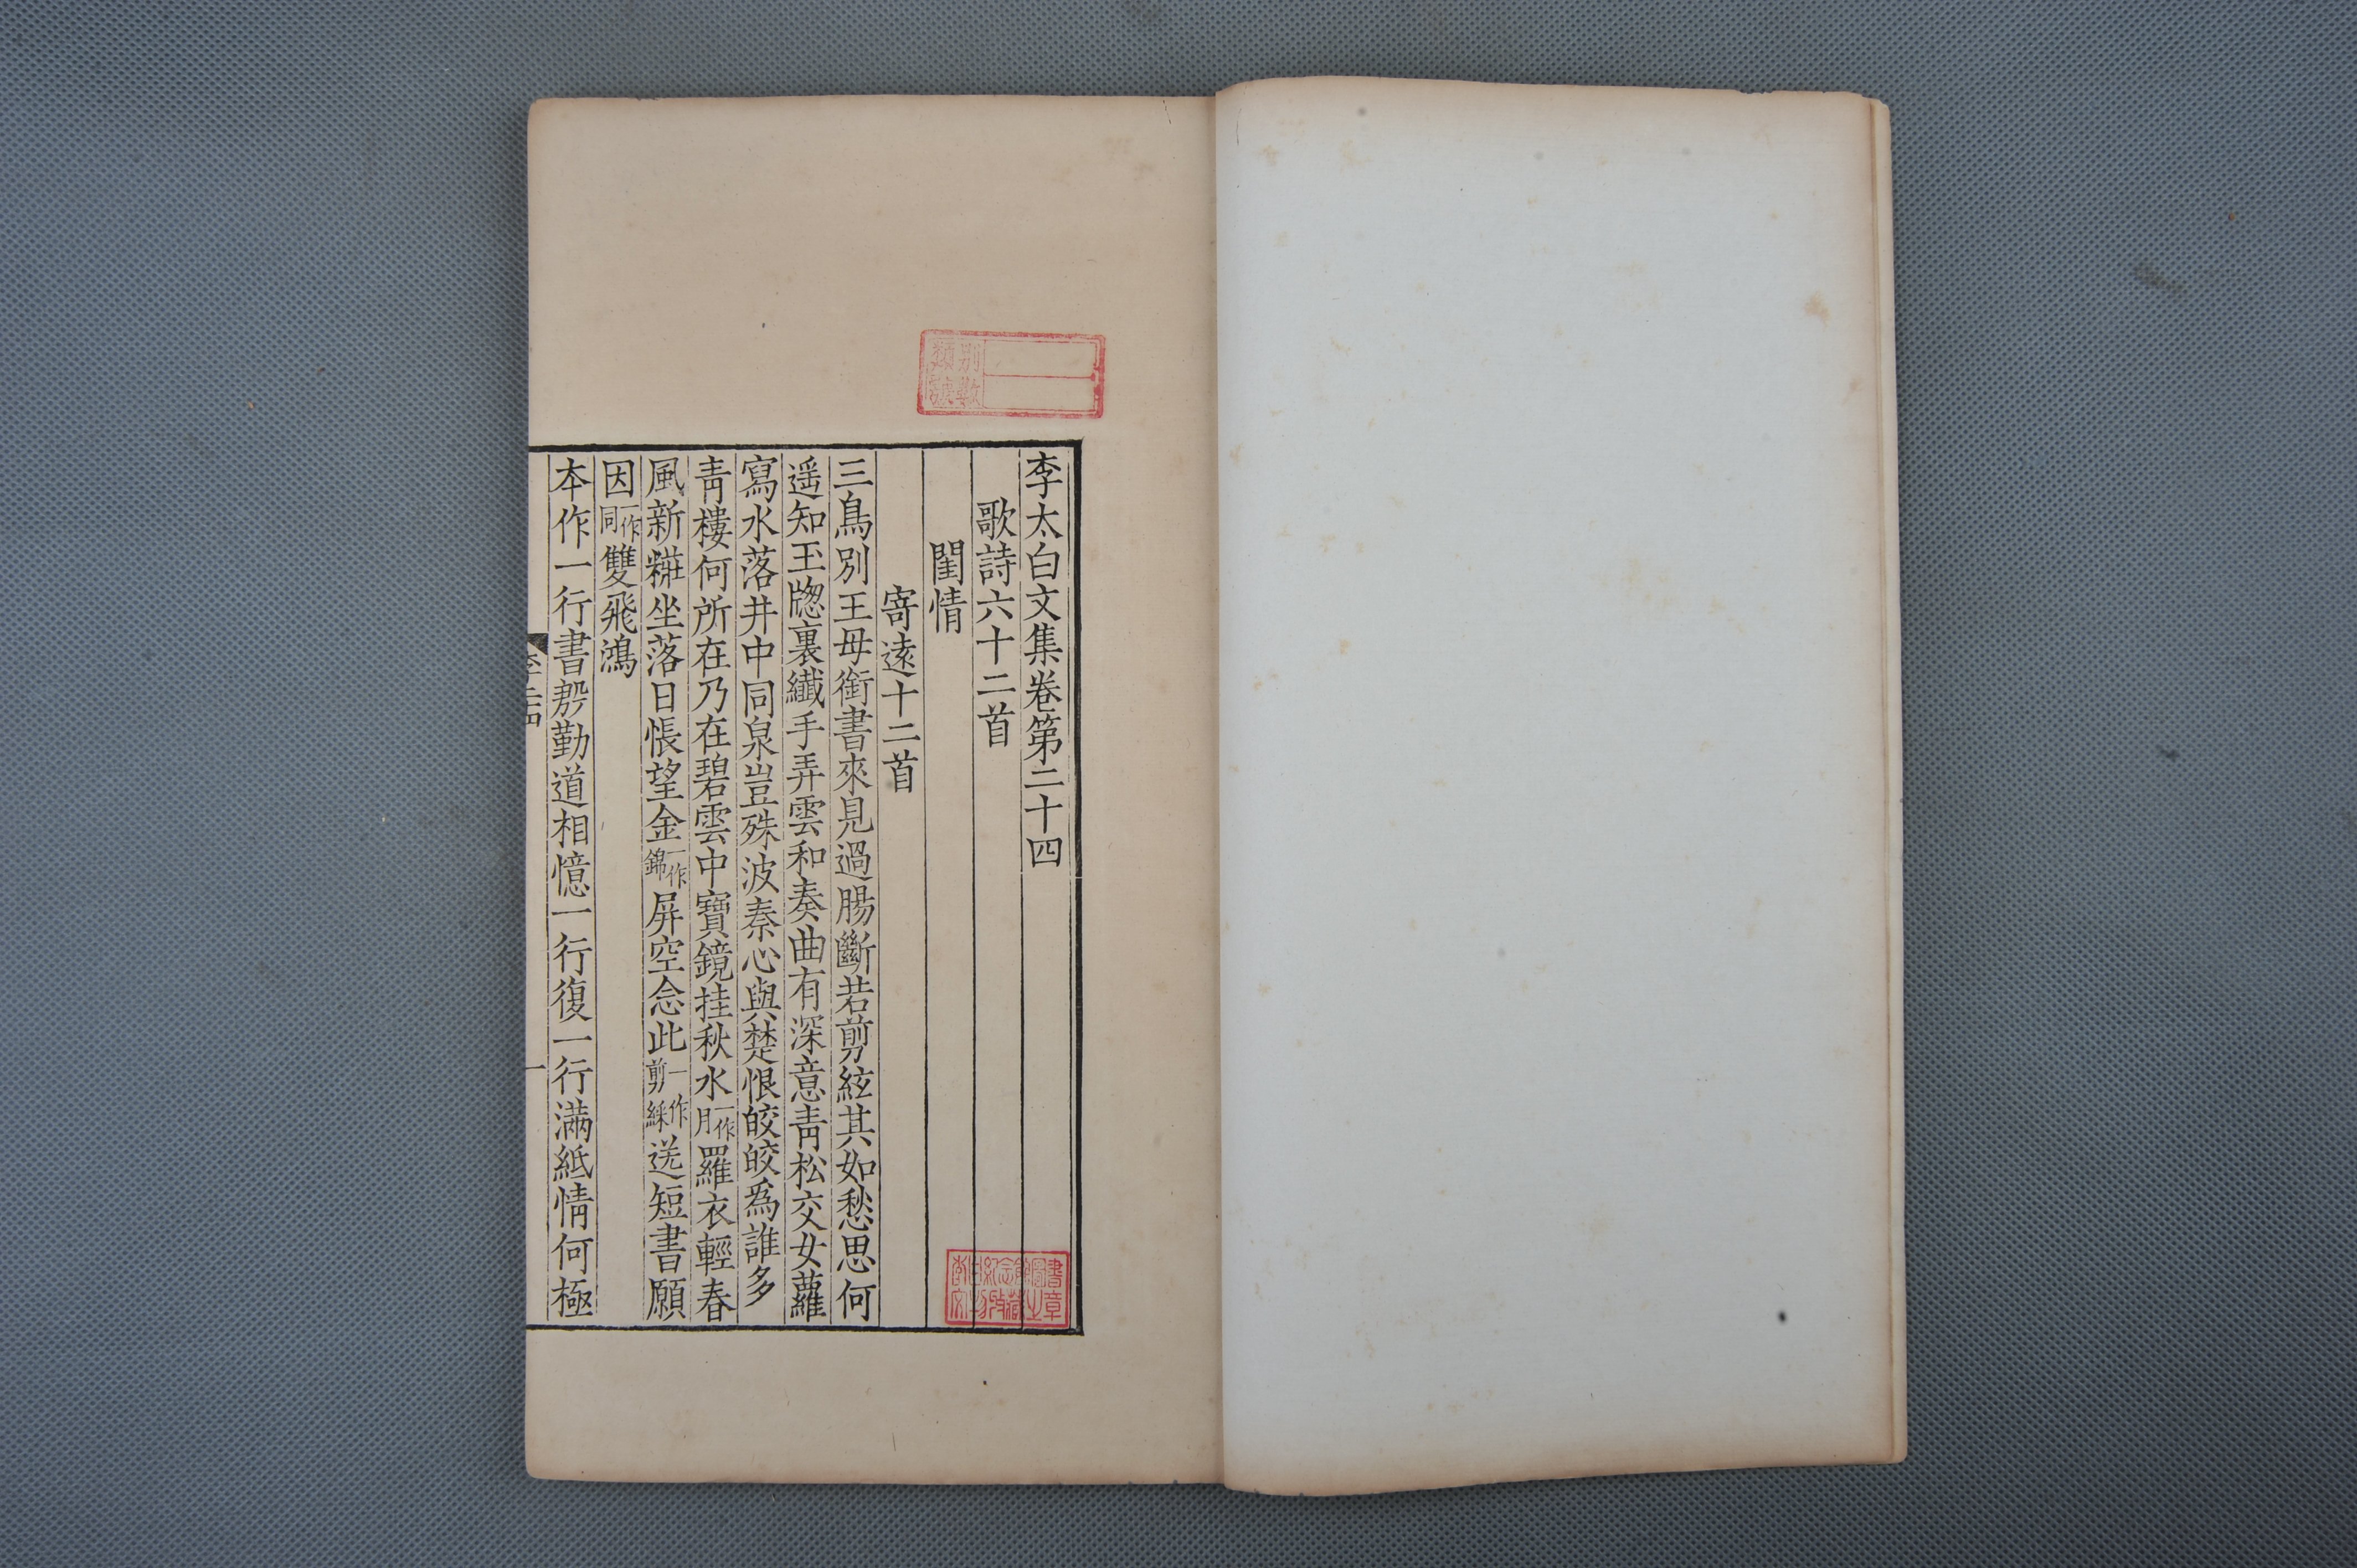 李太白文集卷第二十四
歌詩六十二首
閨情
寄遠十二首
三鳥別王母銜書來見過腸斷若剪絃其如愁思何
遥知玉牕裏纖手弄雲和奏曲有深意青松交女蘿
寫水落井中同泉豈殊波秦心與楚恨皎皎爲誰多
青樓何所在乃在碧雲中寶鏡挂秋水一作月羅衣輕春
風新糚坐落日悵望金一作錦屏空念此一作剪綵送短書願
因一作同雙飛鴻
本作一行書慇勤道相憶一行復一行滿紙情何極
李二十四
一
別類
書圖館念紀白李
章之藏